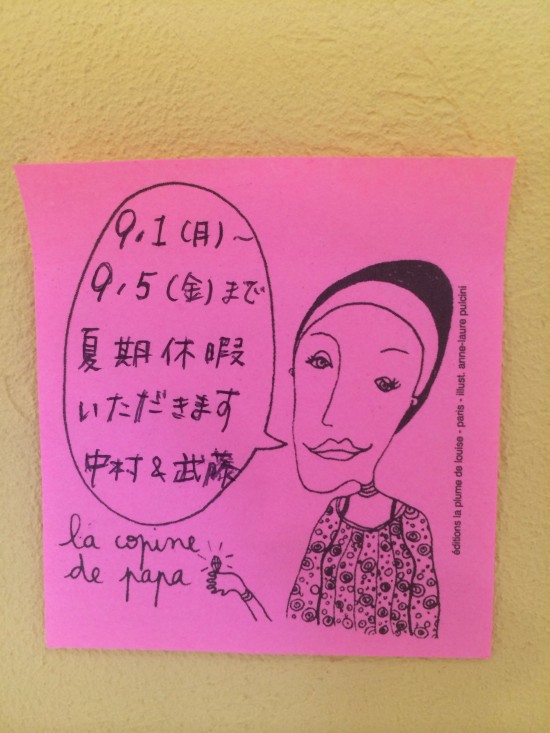 9.1(月)~
9.5(金)まで
夏期休暇
いただきます
中村&武藤
la copine
de papa
éditions la plume de louise - paris - illust. anne-laure pulcini